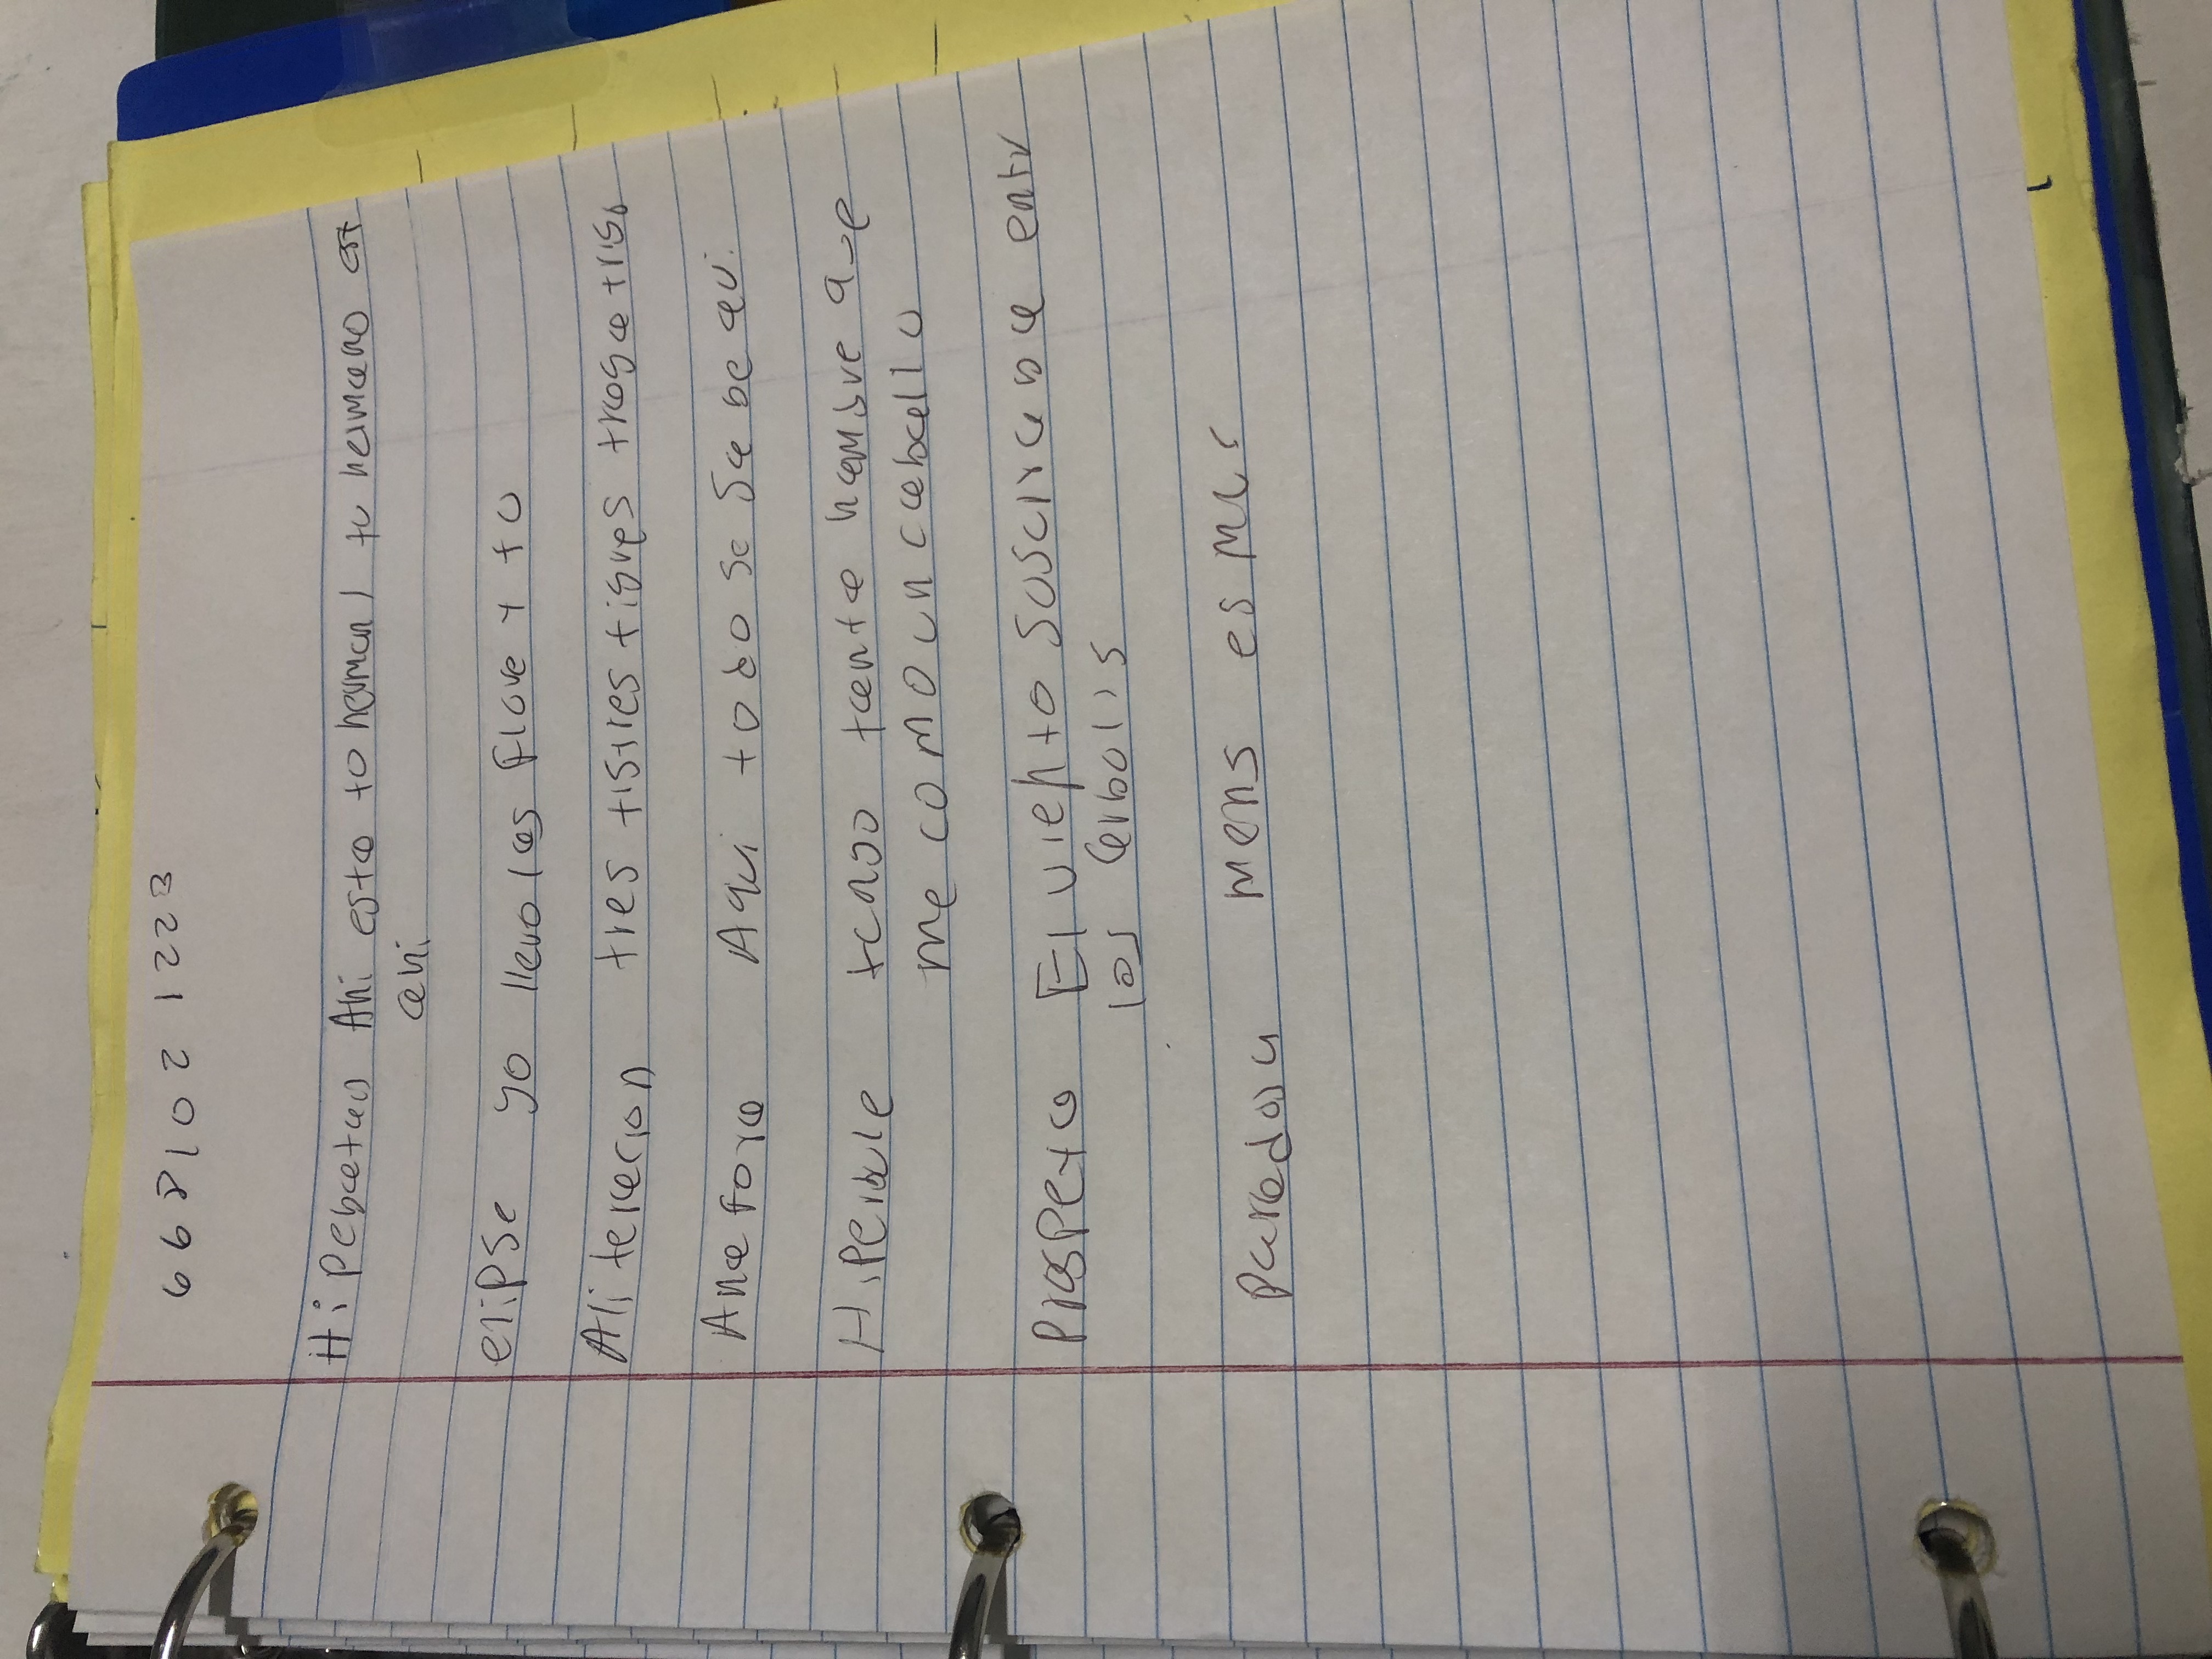 6681021223
Hipebaton Ahi esta to herman, tu hermano est
ahi.
elipse yo llevo las flore y tu
Aliteracion tres tistres tigres traga trig
Anafora Aqui todo se sabe aqui.
Hiperbole tengo tanta hambre que
me como un caballo
El viento susuraba entr
los arbolis
paradoja mens es mas